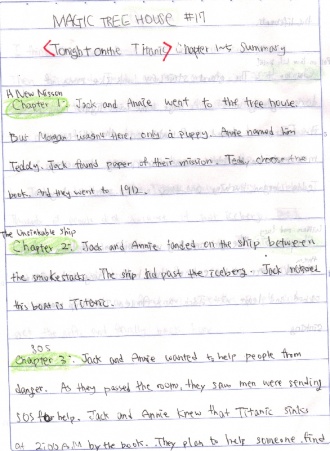 MAGIC TREE HOUSE #17
<Tonight on the Titanic> Chapter 1~5 Summary
A New Misson
Chapter 1: Jack and Annie went to the tree house.
But Morgan wasn't there, only a puppy. Annie named him
Teddy. Jack found paper of their mission. Teddy choose the
book. And they went to 1912.
The Unsinkable Ship
Chapter 2: Jack and Annie landed on the ship between
the smokestacks. The ship had past the iceberg. Jack noticed
this boat is Titanic.
SOS
Chapter 3: Jack and Annie wanted to help people from
danger. As they passed the room, they saw men were sending
SOS for help. Jack and Annie knew that Titanic sinks
at 2:00 A.M by the book. They plan to help someone, find